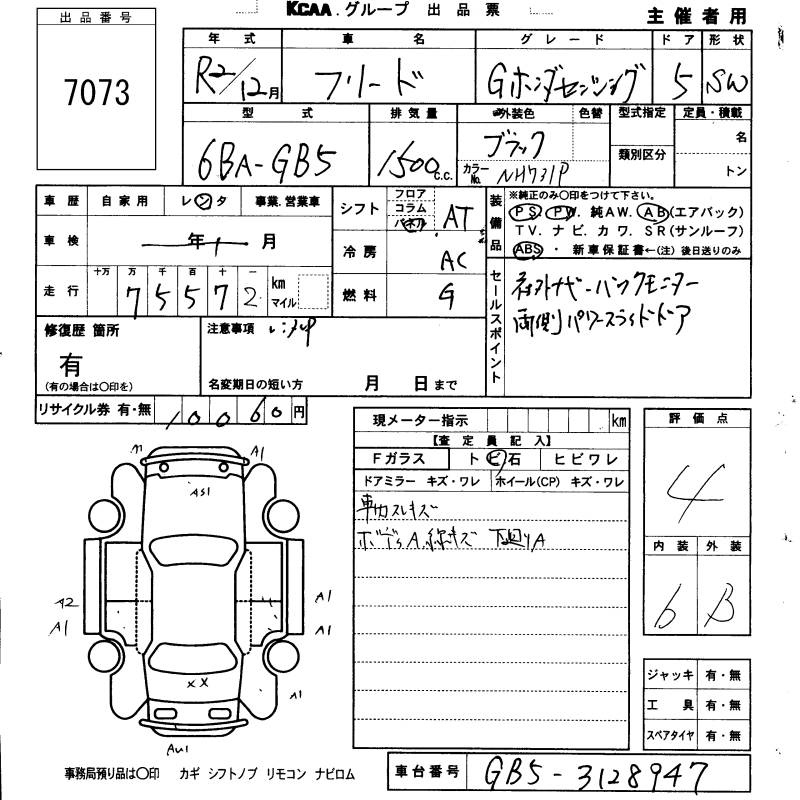 KCAA. グループ 出品票
主催者用
出品番号
7073
年式 車名 グレード ドア 形状
R2/12月 フリード Gホンダセンシング 5 SW
型式 排気量 外装色 色替 型式指定 定員・積載
6BA-GB5 1500 c.c. ブラック 類別区分 名
カラーNo. NH731P トン
車歴 自家用 レンタ 事業.営業車
シフト フロア コラム パネル AT
装備品
※純正のみ〇印をつけて下さい。
PS. PW. 純AW. AB(エアバック)
TV. ナビ. カワ. SR(サンルーフ)
ABS ・ 新車保証書←(注) 後日送りのみ
車検 年 月
冷房 AC
走行 十万 万 千 百 十 一
75572 km マイル
燃料 G
セールスポイント
両側パワースライドドア
修復歴 箇所
有
(有の場合は〇印を)
注意事項
名変期日の短い方 月 日まで
リサイクル券 有・無 10060円
現メーター指示 km
【査定員記入】
Fガラス トビ石 ヒビワレ
ドアミラー キズ・ワレ ホイール(CP) キズ・ワレ
車内スレキズ
ボディA.線キズ 下廻りA
評価点
4
内装 外装
6 B
A1
AS1
A2
A1
A1
A1
XX
A1
AU1
ジャッキ 有・無
工具 有・無
スペアタイヤ 有・無
事務局預り品は〇印 カギ シフトノブ リモコン ナビロム
車台番号 GB5-3128947